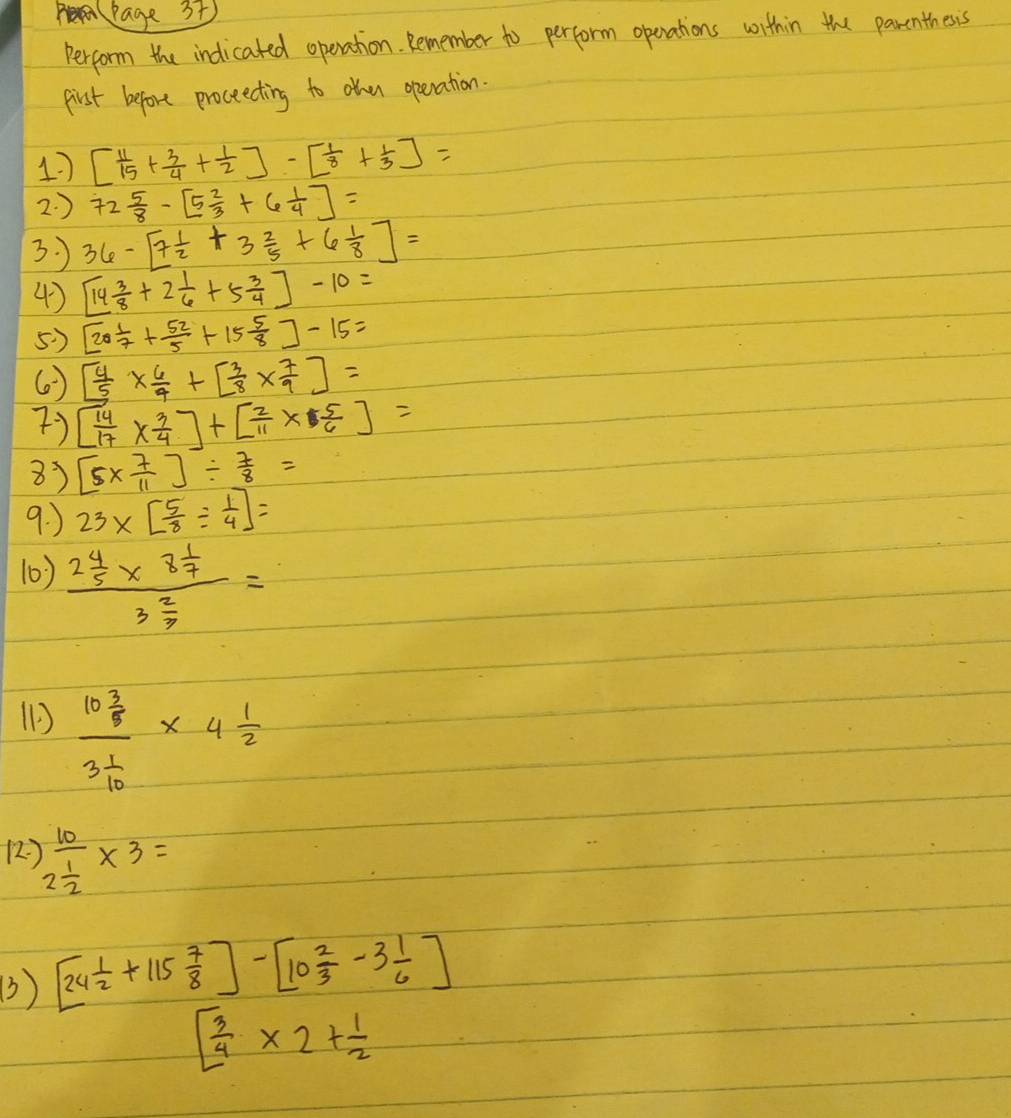 Page 37
Perform the indicated operation. Remember to perform operations within the parenthesis
first before proceeding to other operation.
1.) [11/15 + 3/4 + 1/2] - [1/8 + 1/3] =
2.) 72 5/8 - [5 2/3 + 6 1/4] =
3.) 36 - [7 1/2 + 3 2/5 + 6 1/8] =
4.) [14 3/8 + 2 1/6 + 5 3/4] - 10 =
5.) [20 1/7 + 52/5 + 15 5/8] - 15 =
6.) [4/5 × 6/9 + [3/8 × 7/9] =
7.) [14/17 × 3/4] + [2/11 × 5/6] =
8.) [5 × 7/11] ÷ 7/8 =
9.) 23 × [5/8 ÷ 1/4] =
10.) 2 4/5 × 8 1/7 =
3 2/3
11.) 10 3/5 × 4 1/2
3 1/10
12.) 10 × 3 =
2 1/2
13) [24 1/2 + 115 7/8] - [10 2/3 - 3 1/6]
[3/4 × 2 + 1/2